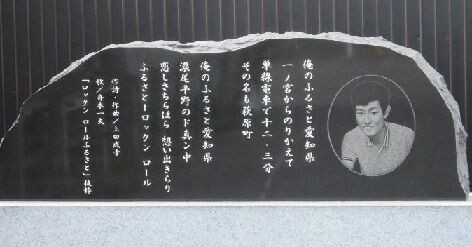 俺のふるさと愛知県
一ノ宮からのりかえて
単線電車で十二・三分
その名も萩原町
俺のふるさと愛知県
濃尾平野のド真ン中
恋しさちらほら 想い出きらり
ふるさとーロックン ロール
作詩・作曲／上田成幸
歌／舟木一夫
「ロックン ロールふるさと」抜粋